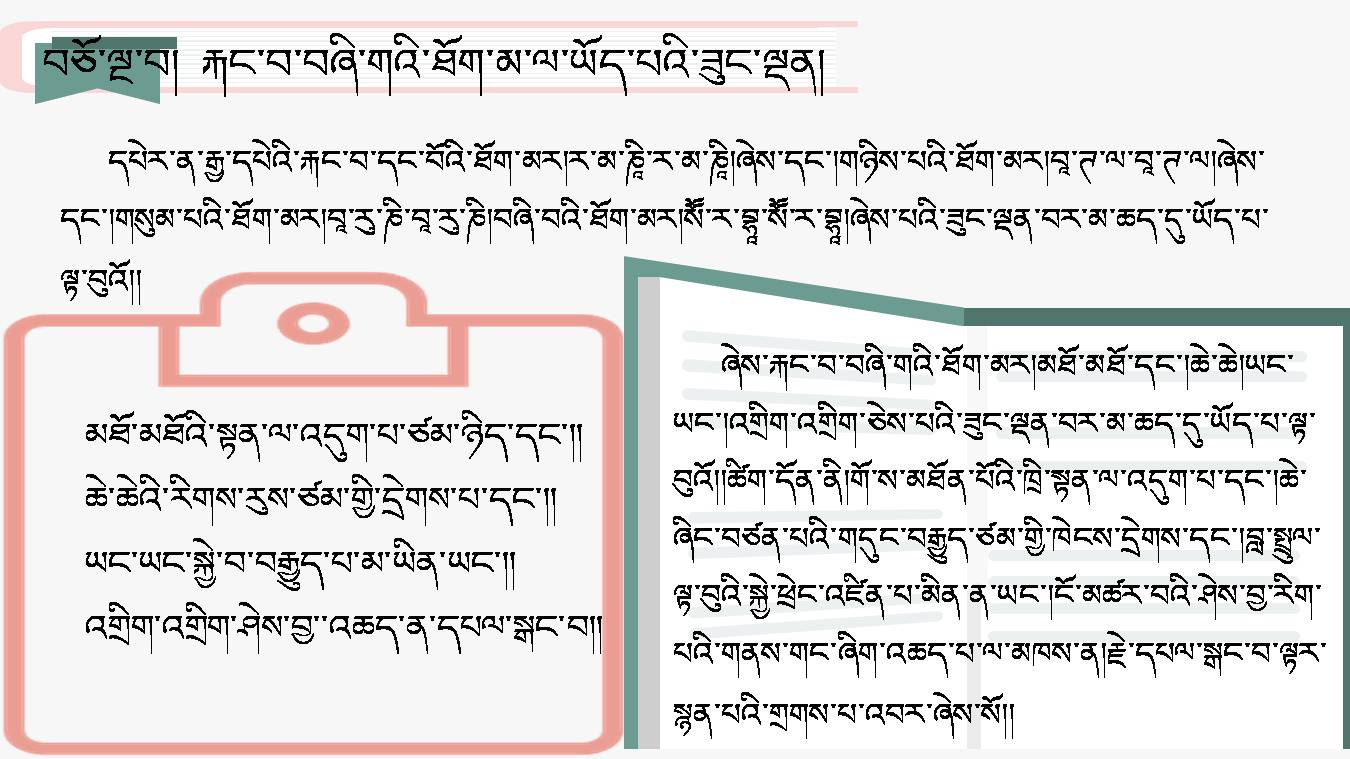 བཅོ་ལྔ་བ། རྐང་བ་བཞི་གའི་ཐོག་མ་ལ་ཡོད་པའི་ཟུང་ལྡན།
དཔེར་ན་རྒྱ་དཔེའི་རྐང་བ་དང་པོའི་ཐོག་མར།ར་མ་ཎཱི་ར་མ་ཎཱི།ཞེས་དང་།གཉིས་པའི་ཐོག་མར།བཱ་ཌ་ལ་བཱ་ཌ་ལ།ཞེས་
དང་།གསུམ་པའི་ཐོག་མར།བཱ་རུ་ཎི་བཱ་རུ་ཎི།བཞི་བའི་ཐོག་མར།སཽ་ར་བྷཱ་སཽ་ར་བྷཱ།ཞེས་པའི་ཟུང་ལྡན་བར་མ་ཆད་དུ་ཡོད་པ་
ལྟ་བུའོ།།
མཐོ་མཐོའི་སྟན་ལ་འདུག་པ་ཙམ་ཉིད་དང་།།
ཆེ་ཆེའི་རིགས་རུས་ཙམ་གྱི་དྲེགས་པ་དང་།།
ཡང་ཡང་སྐྱེ་བ་བརྒྱུད་པ་མ་ཡིན་ཡང་།།
འགྲིག་འགྲིག་ཤེས་བྱ་་འཆད་ན་དཔལ་སྒང་བ།།
ཞེས་རྐང་བ་བཞི་གའི་ཐོག་མར།མཐོ་མཐོ་དང་།ཆེ་ཆེ།ཡང་
ཡང་།འགྲིག་འགྲིག་ཅེས་པའི་ཟུང་ལྡན་བར་མ་ཆད་དུ་ཡོད་པ་ལྟ་
བུའོ།།ཚིག་དོན་ནི།གོ་ས་མཐོན་པོའི་ཁྲི་སྟན་ལ་འདུག་པ་དང་།ཆེ་
ཞིང་བཙན་པའི་གདུང་བརྒྱུད་ཙམ་གྱི་ཁེངས་དྲེགས་དང་།བླ་སྤྲུལ་
ལྟ་བུའི་སྐྱེ་ཕྲེང་འཛིན་པ་མིན་ན་ཡང་།ངོ་མཚར་བའི་ཤེས་བྱ་རིག་
པའི་གནས་གང་ཞིག་འཆད་པ་ལ་མཁས་ན།རྗེ་དཔལ་སྒང་བ་ལྟར་
སྙན་པའི་གྲགས་པ་འབར་ཞེས་སོ།།